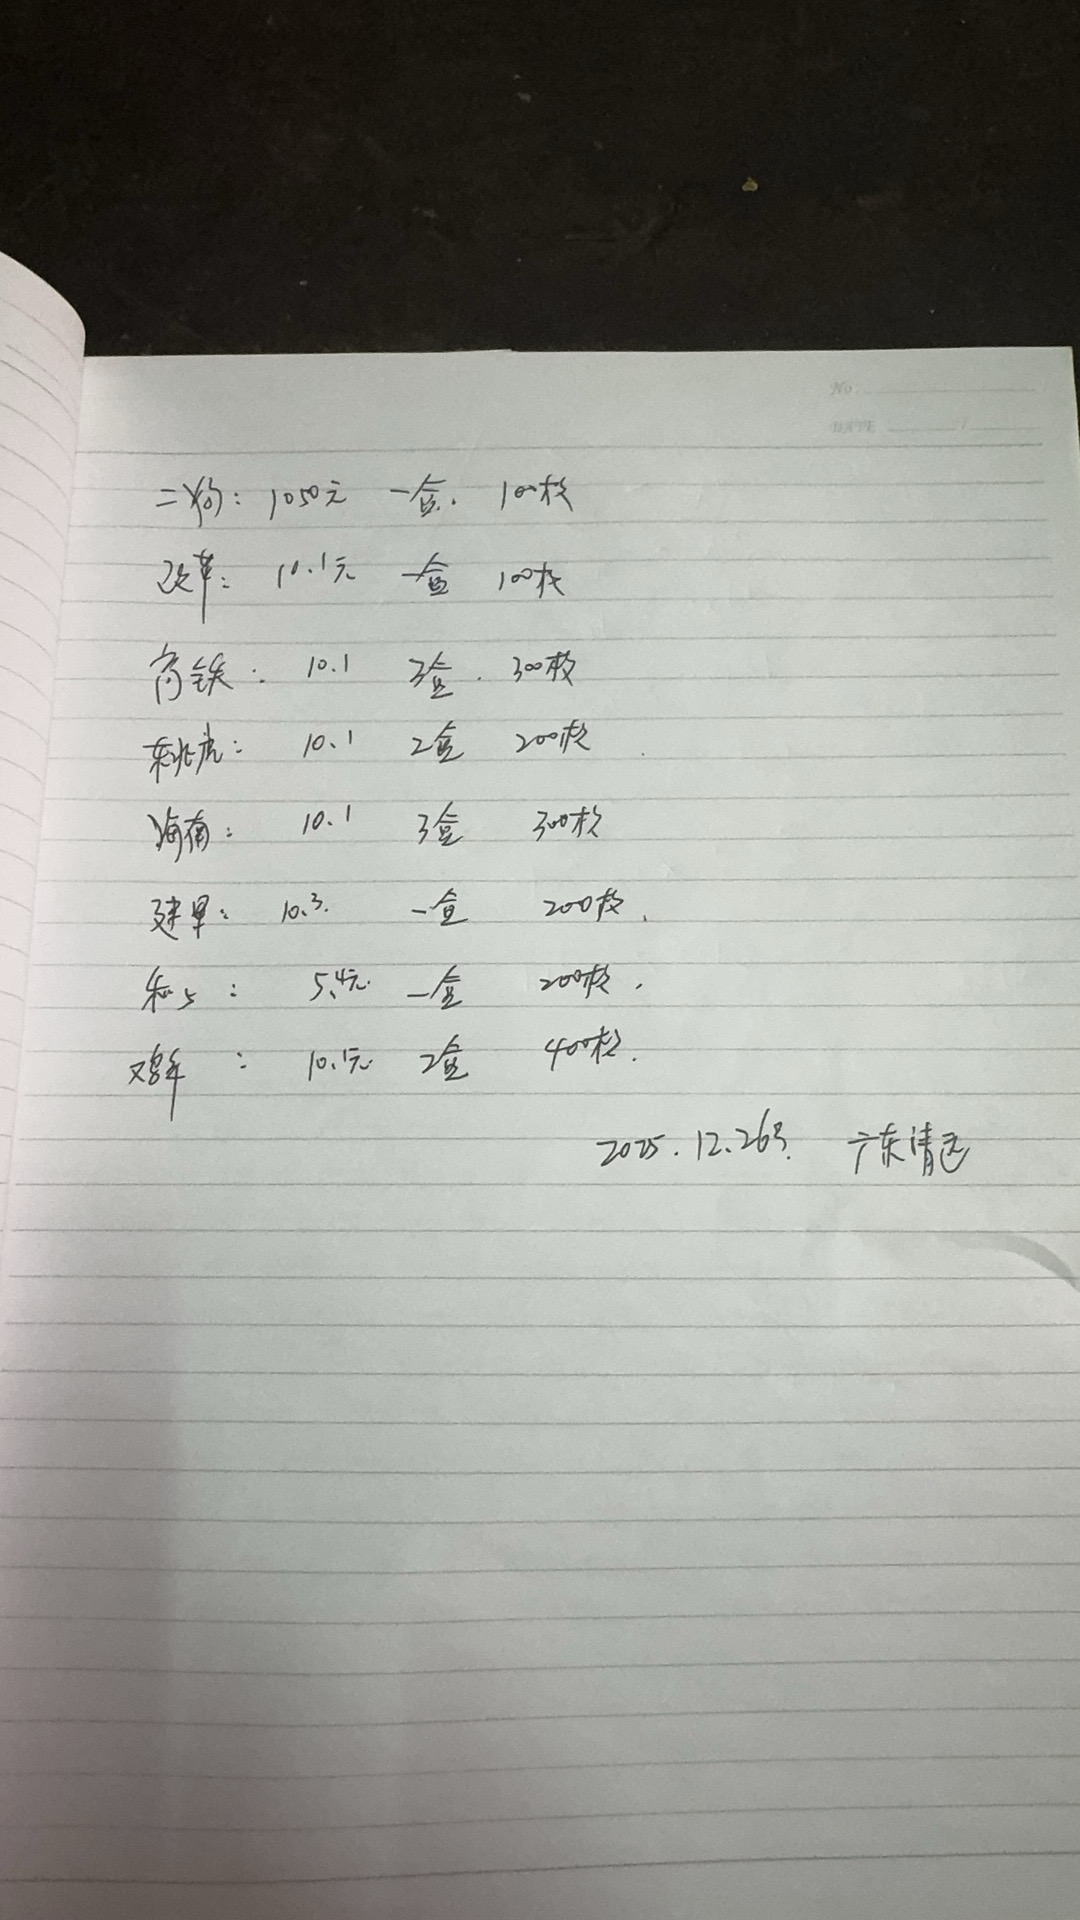 No.
DATE /
二狗: 1050元 一盒. 100枚
改革: 10.1元 一盒 100枚
高铁: 10.1 3盒. 300枚
东北虎: 10.1 2盒 200枚
海南: 10.1 3盒 300枚
建军: 10.3. 一盒 200枚.
和5: 5.4元. 一盒 200枚.
: 10.1元. 2盒 400枚.
2025.12.26号. 广东清远